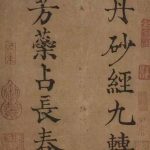 丹砂經九轉
芳藥占長春